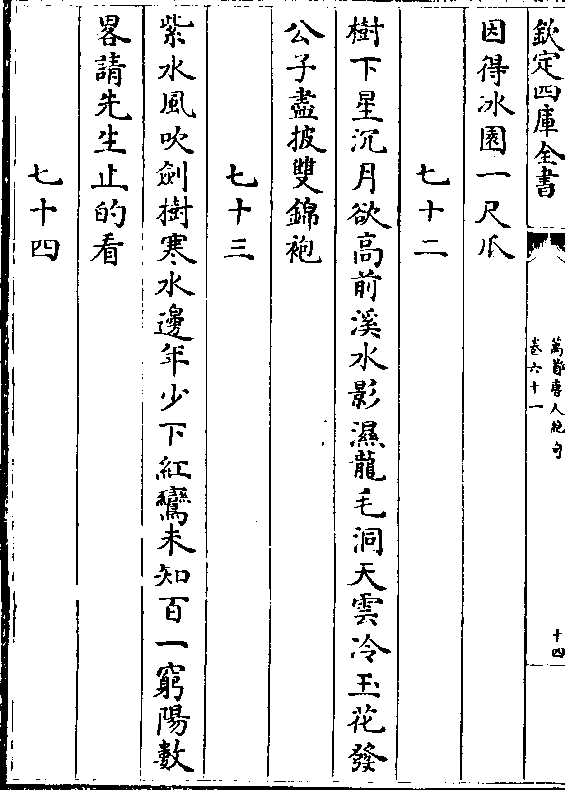 欽定四庫全書
萬首唐人絶句
卷六十一
十四
因得冰園一尺瓜
七十二
樹下星沉月欲高前溪水影濕龍毛洞天雲冷玉花發
公子盡披雙錦袍
七十三
紫水風吹劍樹寒水邊年少下紅鸞未知百一窮陽數
畧請先生止的看
七十四